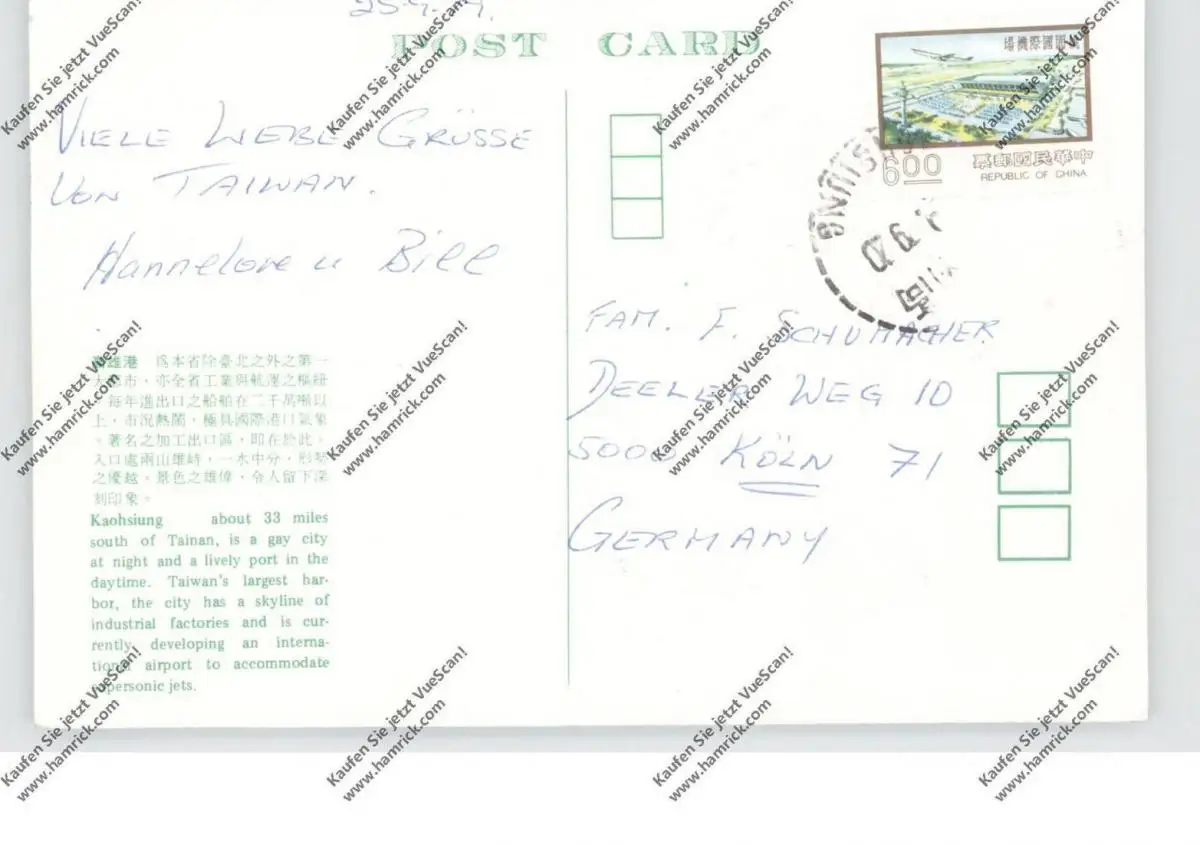 POST CARD
VIELE LIEBE GRÜSSE
VON TAIWAN.
Hannelore u Bill
高雄港 爲本省除臺北之外之第一
大都市，亦全省工業與航運之樞紐
，每年進出口之船舶在二千萬噸以
上，市況熱鬧，極具國際港口氣象
。著名之加工出口區，即在於此。
入口處兩山雄峙，一水中分，形勢
之優越。景色之雄偉，令人留下深
刻印象。
Kaohsiung about 33 miles
south of Tainan, is a gay city
at night and a lively port in the
daytime. Taiwan's largest har-
bor, the city has a skyline of
industrial factories and is cur-
rently developing an interna-
tional airport to accommodate
supersonic jets.
國際機場
6.00
中華民國郵票
REPUBLIC OF CHINA
FAM. F. SCHUMACHER
DEELER WEG 10
5000 KÖLN 71
GERMANY
Kaufen Sie jetzt VueScan!
www.hamrick.com